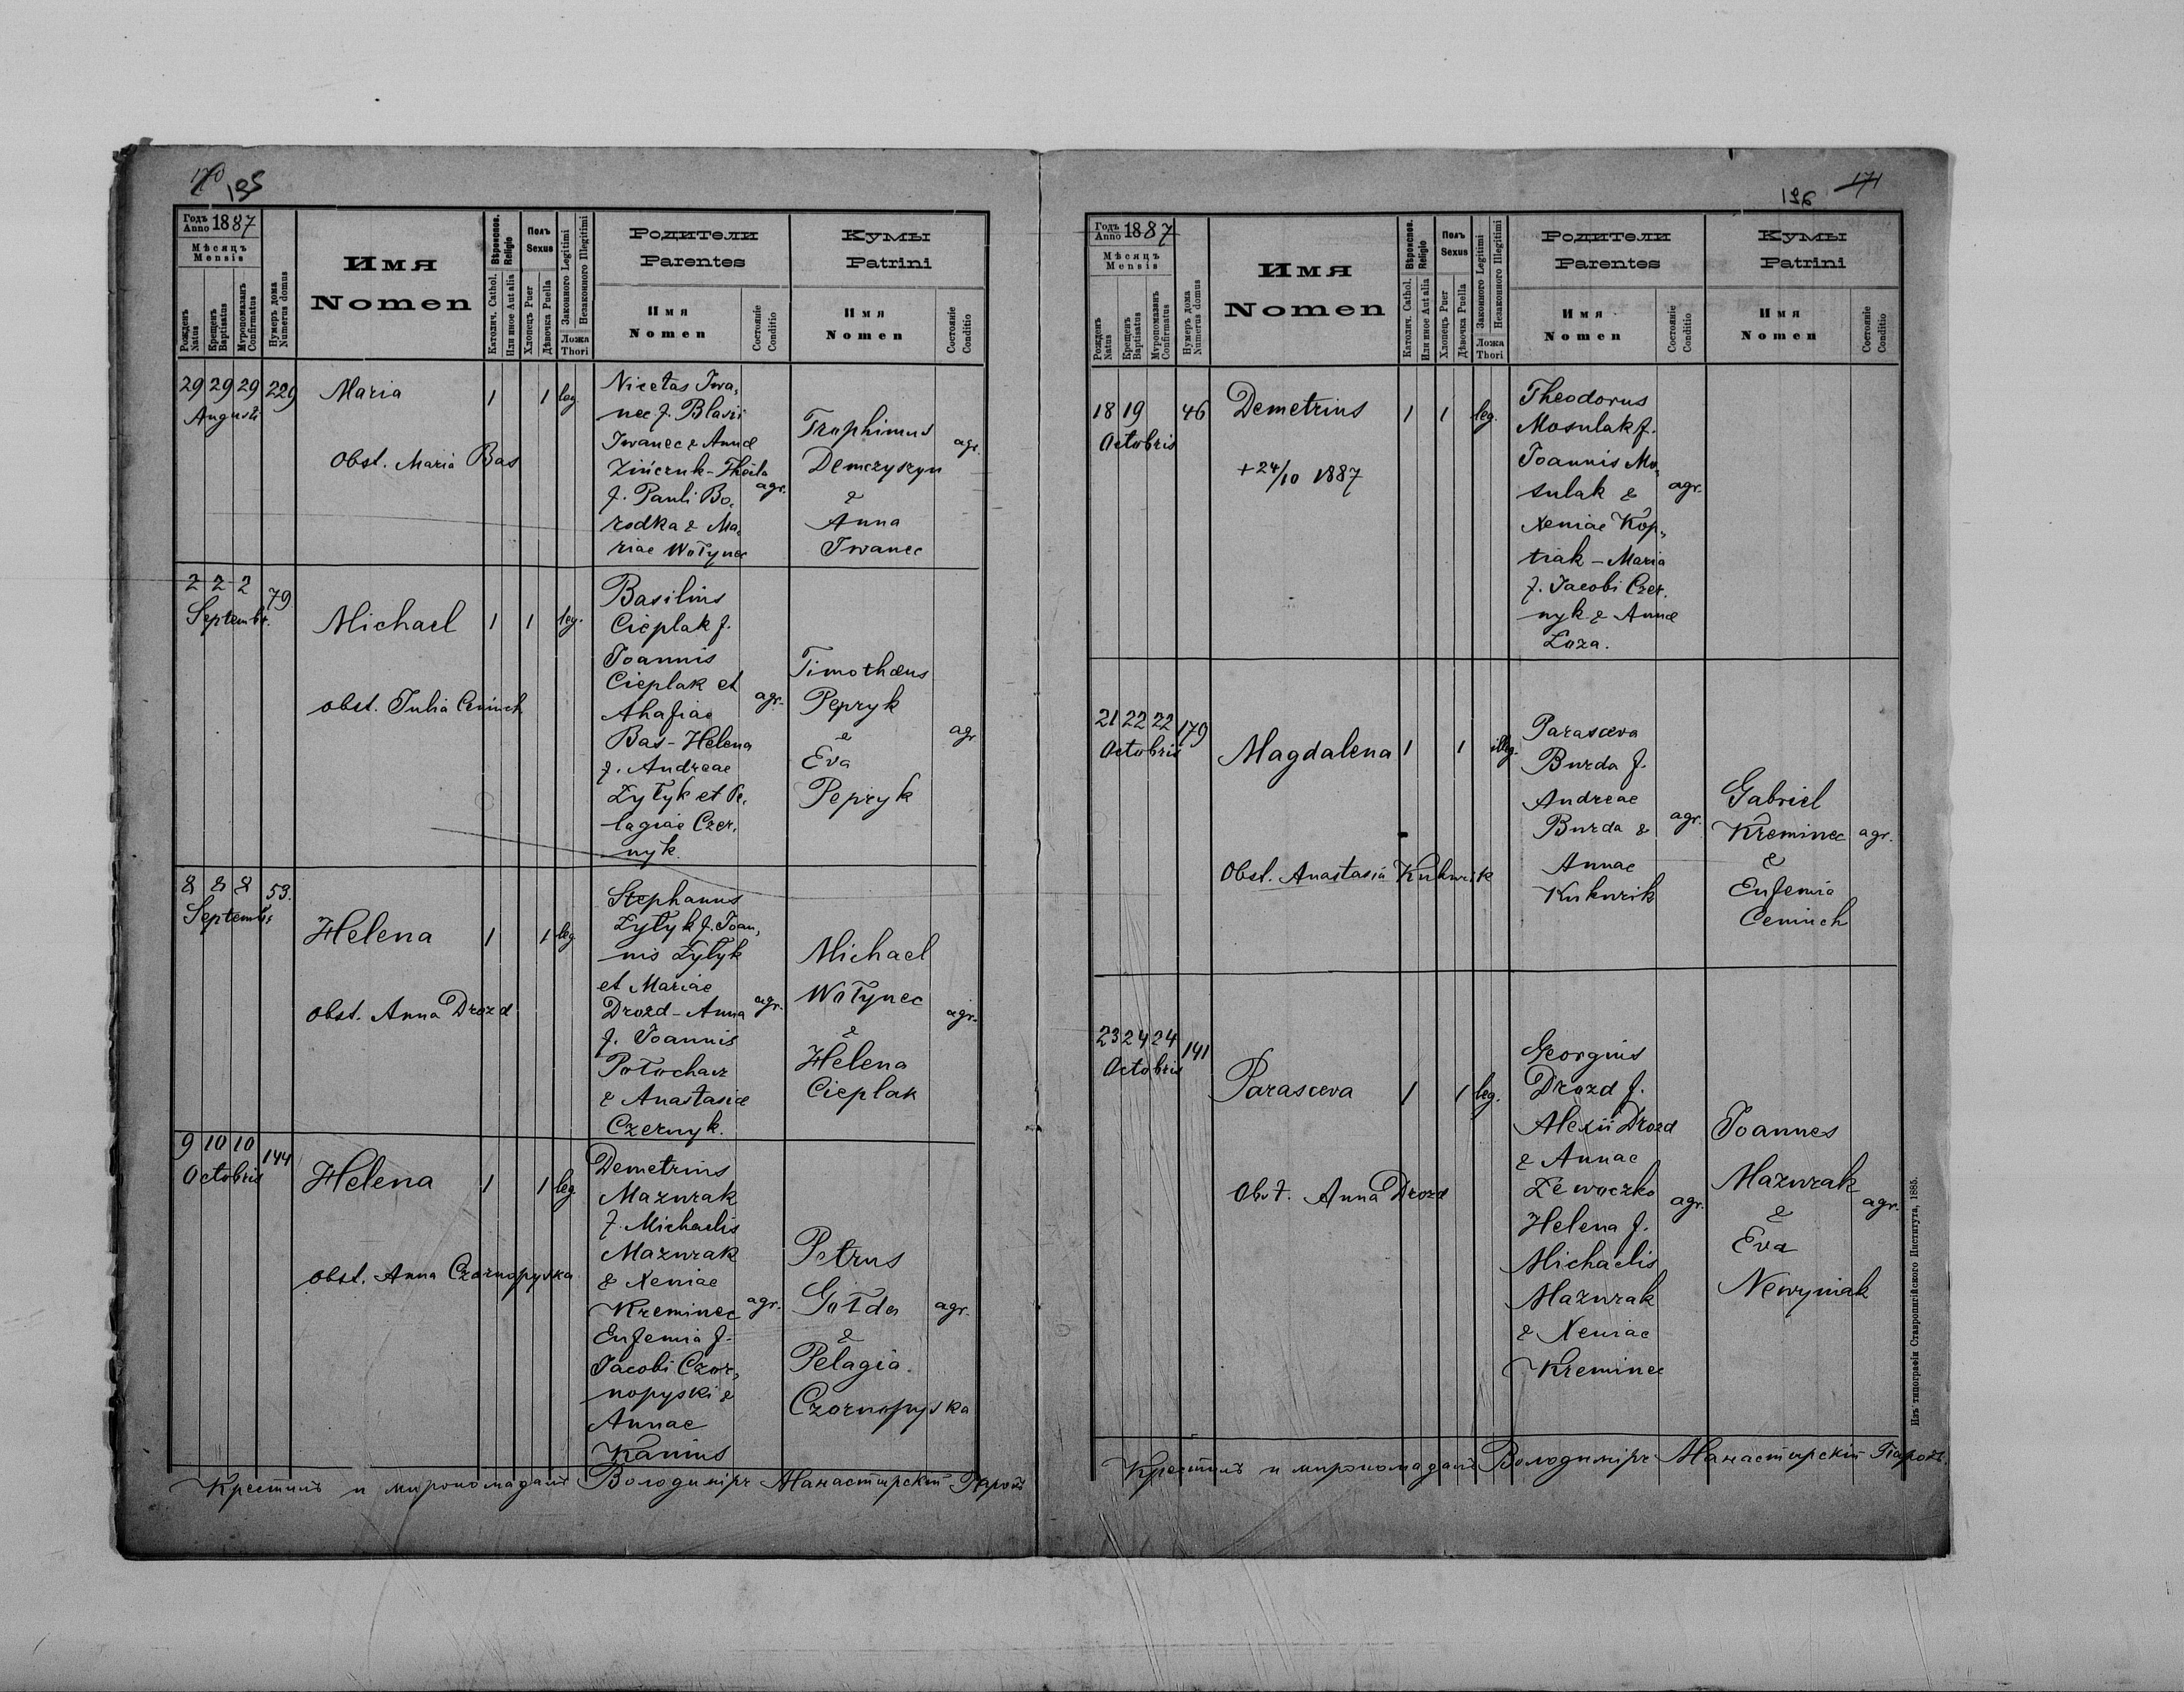 170 195
Годъ Anno 1887
Мѣсяцъ Mensis
Рожденъ Natus
Крещенъ Baptisatus
Мѵропомазанъ Confirmatus
Нумеръ дома Numerus domus
Имя Nomen
Вѣроиспов. Religio
Католич. Cathol.
Или иное Aut alia
Полъ Sexus
Хлопецъ Puer
Дѣвочка Puella
Законного Legitimi
Незаконного Illegitimi
Ложа Thori
Родители Parentes
Имя Nomen
Состояніе Conditio
Кумы Patrini
Имя Nomen
Состояніе Conditio
29 29 29 229
Augusti
Maria
1 1 leg
Obst. Maria Bas
Nicetas Iwa„
nec f. Blasii
Iwanec & Annæ
Zińczuk - Thecla
f. Pauli Bo„
rodka & Ma„
riae Wołynec
agr.
Trophimus
Demczyszyn
&
Anna
Iwanec
agr.
2 2 2 79
Septembr.
Michael
1 1 leg.
obst. Julia Ceniuch
Basilius
Cieplak f.
Joannis
Cieplak et
Ahafiae
Bas - Helena
f. Andreae
Zytyk et Pe„
lagiae Czer„
nyk.
agr.
Timothæus
Pepryk
&
Eva
Pepryk
agr
8 8 8 53.
Septembr
Helena
1 1 leg
obst. Anna Drozd
Stephanus
Zytyk f. Joan„
nis Zytyk
et Mariae
Drozd - Anna
f. Joannis
Potochar
& Anastasiæ
Czernyk.
agr.
Michael
Wołynec
&
Helena
Cieplak
agr.
9 10 10 144
Octobris
Helena
1 1 leg
obst. Anna Czornopyska
Demetrius
Mazurak
f. Michaelis
Mazurak
& Xeniae
Kreminec
Eufemia f.
Jacobi Czor„
nopyski &
Annae
Kanius
agr.
Petrus
Gołda
&
Pelagia
Czornopyska
agr.
Крестилъ и миропомазалъ Володимiръ Манастирскій Парохъ
196 171
Годъ Anno 1887
Мѣсяцъ Mensis
Рожденъ Natus
Крещенъ Baptisatus
Мѵропомазанъ Confirmatus
Нумеръ дома Numerus domus
Имя Nomen
Вѣроиспов. Religio
Католич. Cathol.
Или иное Aut alia
Полъ Sexus
Хлопецъ Puer
Дѣвочка Puella
Законного Legitimi
Незаконного Illegitimi
Ложа Thori
Родители Parentes
Имя Nomen
Состояніе Conditio
Кумы Patrini
Имя Nomen
Состояніе Conditio
18 19 46
Octobris
Demetrius
1 1 leg.
+ 24/10 1887
Theodorus
Mosulak f.
Joannis Mo„
sulak &
Xeniae Kop„
tiak - Maria
f. Jacobi Czer„
nyk & Annæ
Loza.
agr.
21 22 22 179
Octobris
Magdalena
1 1 illeg.
Obst. Anastasia Kukurik
Parasceva
Burda f.
Andreae
Burda &
Annae
Kukurik
agr.
Gabriel
Kreminec
&
Eufemia
Ceniuch
agr.
23 24 24 141
Octobris
Parasceva
1 1 leg.
Obst. Anna Drozd
Georgius
Drozd f.
Alexii Drozd
& Annae
Lewoczko
Helena f.
Michaelis
Mazurak
& Xeniae
Kreminec
agr.
Joannes
Mazurak
&
Eva
Newyniak
agr.
Крестилъ и миропомазалъ Володимiръ Манастирскій Парохъ.
Изъ типографіи Ставропигійского Института, 1885.